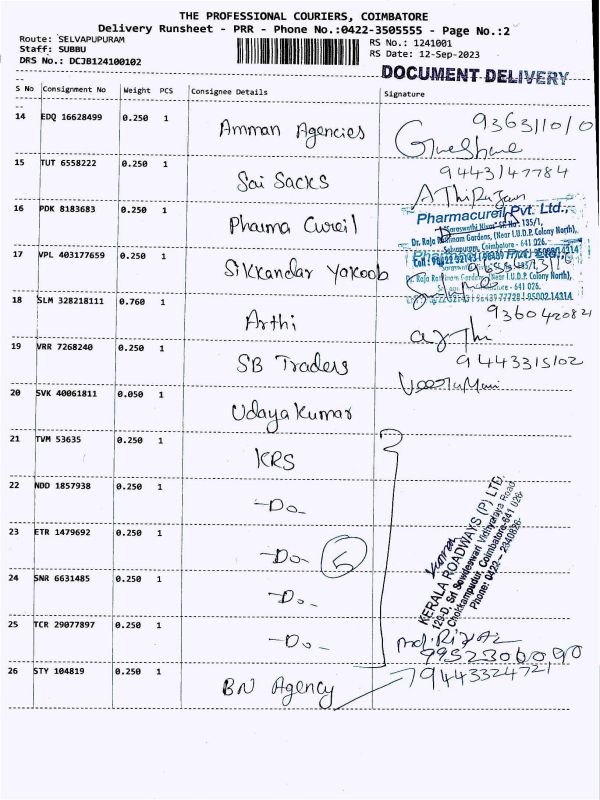 THE PROFESSIONAL COURIERS, COIMBATORE
Delivery Runsheet - PRR - Phone No.:0422-3505555 - Page No.:2
Route: SELVAPUPURAM
RS No.: 1241001
Staff: SUBBU
RS Date: 12-Sep-2023
DRS No.: DCJB124100102
DOCUMENT DELIVERY
S No Consignment No Weight PCS Consignee Details Signature
14 EDQ 16628499 0.250 1 Amman Agencies
15 TUT 6558222 0.250 1 Sai Sacks 9443147784
16 PDK 8183683 0.250 1 Pharma Cureil
Pharmacureil Pvt. Ltd.,
17 VPL 403177659 0.250 1 Sikkandar Yakoob
18 SLM 328218111 0.760 1 Arthi 9360420821
19 VRR 7268240 0.250 1 SB Traders 9443315102
20 SVK 40061811 0.050 1 Udaya Kumar
21 TVM 53635 0.250 1 KRS
22 NDD 1857938 0.250 1 -Do-
23 ETR 1479692 0.250 1 -Do- 5
24 SNR 6631485 0.250 1 -Do-
25 TCR 29077897 0.250 1 -Do-
KERALA ROADWAYS (P) LTD.
129-D, Sri Sowdeswari Vidhyalaya Road,
Chokkampudur, Coimbatore-641 026.
Phone: 0422 - 2340826
26 STY 104819 0.250 1 BN Agency 9443324721